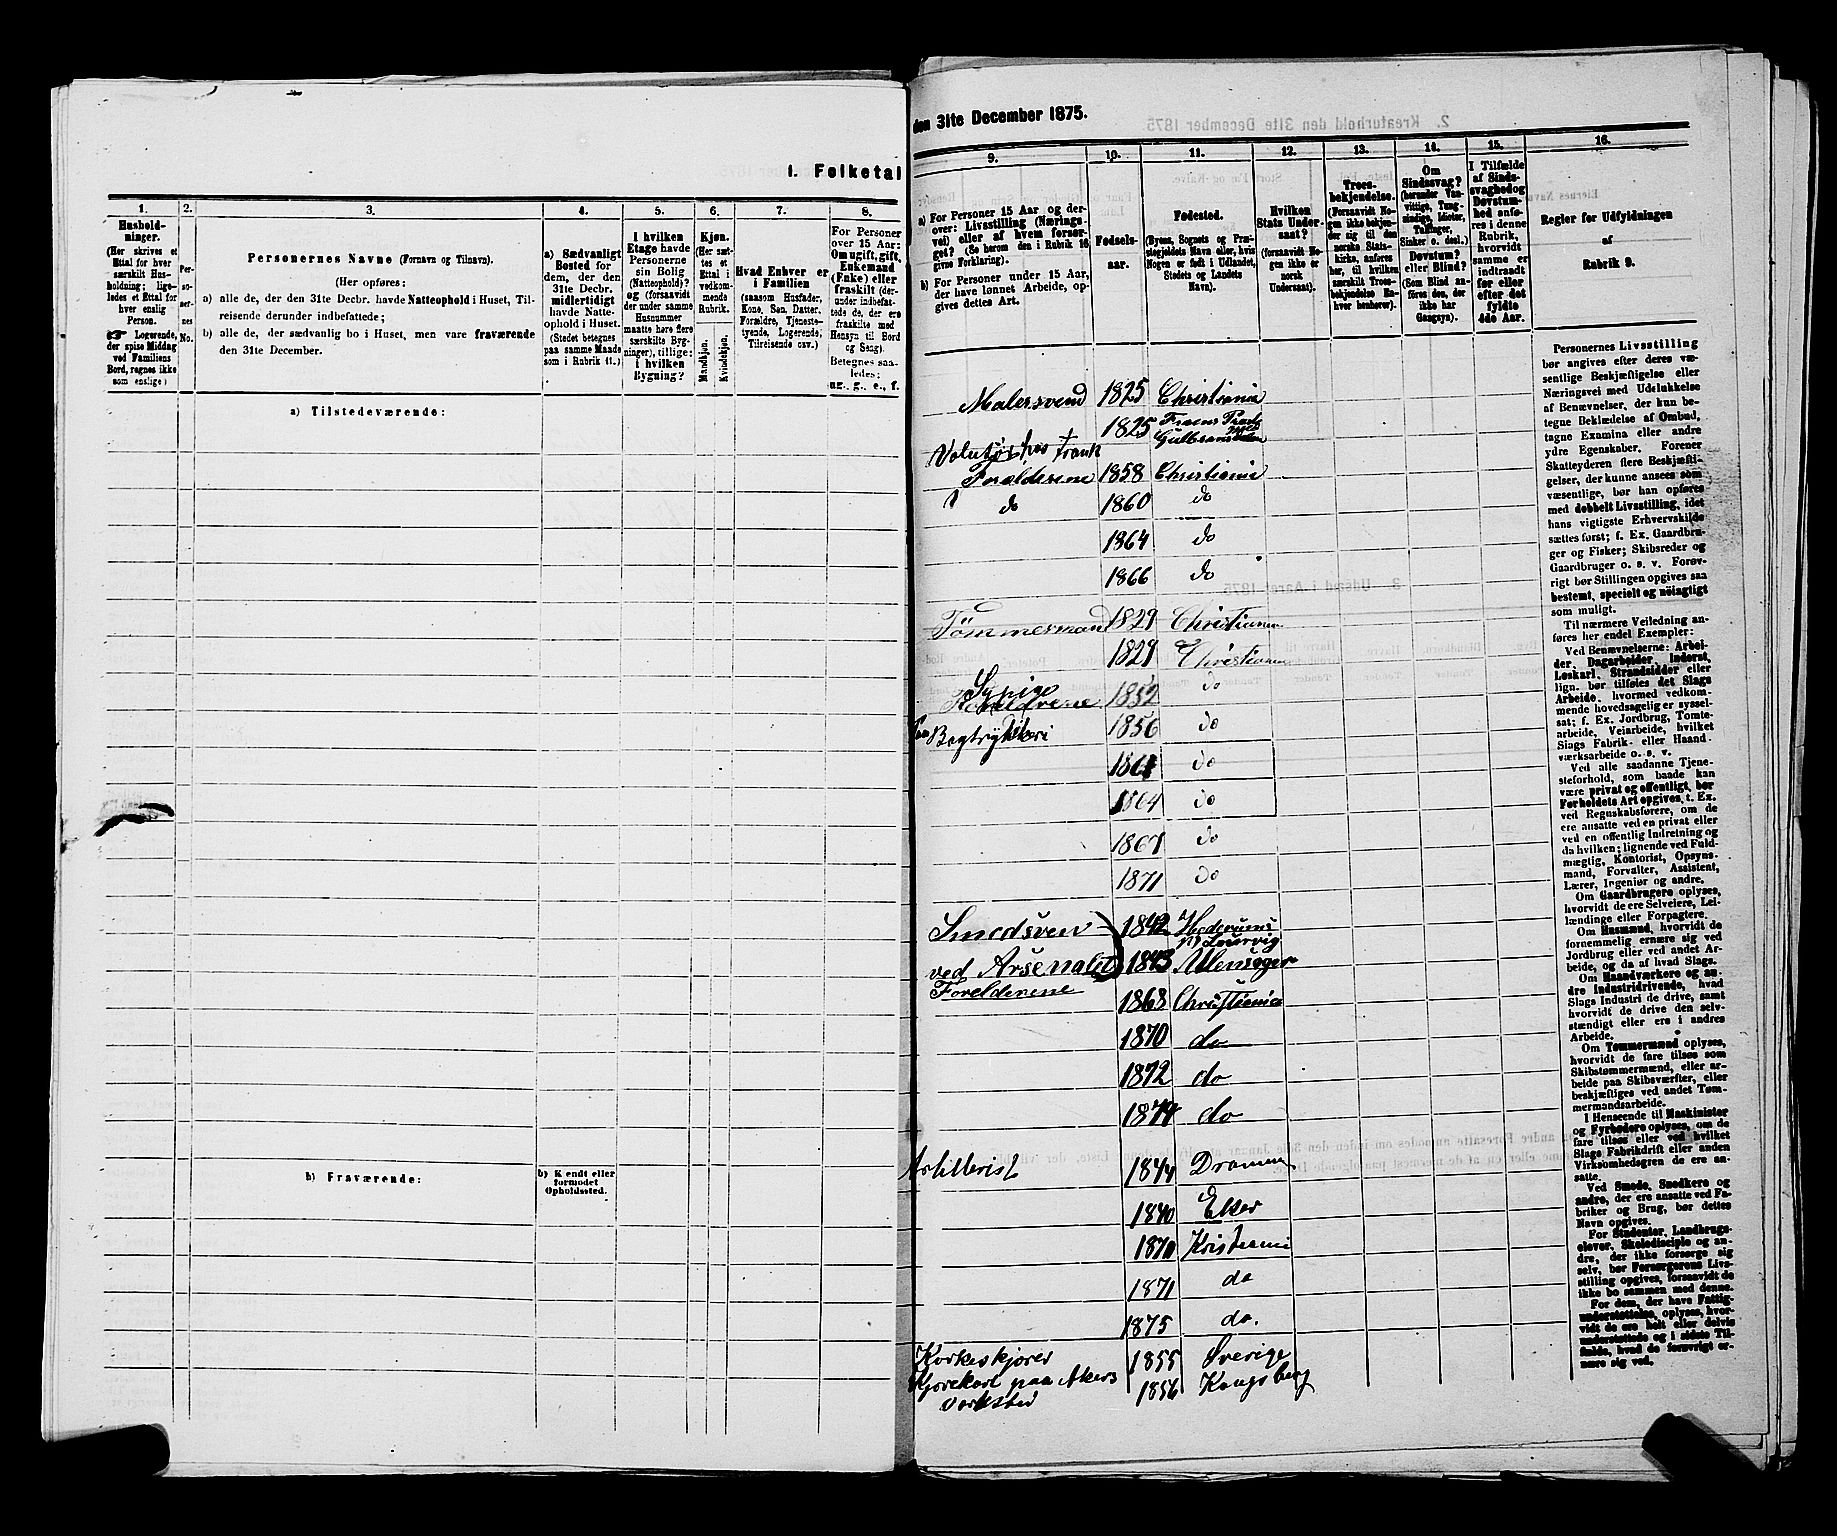 1. Folketal
1.
2.
3.
4.
5.
6.
7.
8.
Hushold-
ninger.
(Her skrives et
Ettal for hver
særskilt Hus-
holdning; lige-
ledes et Ettal for
hver enslig
Person.
☞ Logerende,
der spise Middag
ved Familiens
Bord, regnes ikke
som enslige.)
Per-
so-
ner-
nes
No.
Personernes Navne (Fornavn og Tilnavn).
(Her opføres:
a) alle de, der den 31te Decbr. havde Natteophold i Huset, Til-
reisende derunder indbefattede;
b) alle de, der sædvanlig bo i Huset, men vare fraværende
den 31te December.
a) Sædvanligt
Bosted for
dem, der den
31te Decbr.
midlertidigt
havde Natte-
ophold i Huset.
(Stedet betegnes
paa samme Maade
som i Rubrik 11.)
I hvilken
Etage havde
Personerne
sin Bolig
(Natteophold)?
og (forsaavidt
der under samme
Husnummer
maatte høre flere
særskilte Byg-
ninger), tillige:
i hvilken
Bygning?
Kjøn.
(Her sæt-
tes et
Ettal i
vedkom-
mende
Rubrik.
Mandkjøn.
Kvindekjøn.
Hvad Enhver er
i Familien
(saasom Husfader,
Kone, Søn, Datter,
Forældre, Tjeneste-
tyende, Logerende,
Tilreisende osv.)
For Personer
over 15 Aar:
Om ugift, gift,
Enkemand
(Enke) eller
fraskilt (der-
under indbefat-
tede de, der ere
fraskilte med
Hensyn til Bord
og Seng).
Betegnes saa-
ledes:
ug., g., e., f.
a) Tilstedeværende:
b) Fraværende:
b) Kjendt eller
formodet
Opholdssted.
den 31te December 1875.
2. Kreaturhold den 31te December 1875
9.
10.
11.
12.
13.
14.
15.
16.
a) For Personer 15 Aar og der-
over: Livsstilling (Nærings-
vei) eller af hvem forsør-
get (Se herom den i Rubrik 16
givne Forklaring).
b) For Personer under 15 Aar,
der have lønnet Arbeide, op-
gives dettes Art.
Fødsels-
aar.
Fødested.
(Byens, Sognets og Præ-
stegjeldets Navn eller, hvis
Nogen er født i Udlandet,
Stedets og Landets
Navn).
Hvilken
Stats Under-
saat?
(forsaavidt No-
gen ikke er
norsk
Undersaat).
Troes-
bekjendelse.
(Forsaavidt No-
gen ikke bekjen-
der sig til den
norske Stats-
kirke, anføres
her, til hvilken
særskilt Troes-
bekjendelse En-
hver henhører).
Om
Sindssvag?
(herunder Van-
vittige, Tung-
sindige, Idioter,
Tullinger,
Sinker o. desl.)
Døvstum?
eller Blind?
(Som Blind an-
føres den, der
ikke har
Gangsyn).
I Tilfælde
af Sinds-
svaghed og
Døvstum-
hed anfø-
res i denne
Rubrik,
hvorvidt
samme er
indtraadt
før eller
efter det
fyldte
4de Aar.
Regler for Udfyldningen
af
Rubrik 9.
Malersvend 1825 Christiania
1825
Forælderene 1858 Christiania
do 1860 do
1864 do
1866 do
Tømmermand 1829 Christiania
1829 Christiania
Sypige
1852 do
Bogtrykkeri 1856 do
1861 do
1864 do
1867 do
1871 do
Smedsven 1842 Hederums
P Lourvig
ved Arsenalet 1843 Ullensager
Forelderene
1868 Christiania
1870 do
1872 do
1874 do
Artillerist 1844 Dramen
1840 Eker
1870 Kristiania
1871 do
1875 do.
1855 Sverige
Kjørekarl paa Akers 1856 Kongsberg
Værksted
Personernes Livsstilling
bør angives efter deres væ-
sentlige Beskjæftigelse eller
Næringsvei med Udelukkelse
af Benævnelser, der kun be-
tegne Beklædelse af Ombud,
tagne Examina eller andre
ydre Egenskaber. Forener
Skatteyderen flere Beskjæfti-
gelser, der kunne ansees som
væsentlige, bør han opføres
med dobbelt Livsstilling, idet
hans vigtigste Erhvervskilde
sættes først; f. Ex. Gaardbru-
ger og Fisker; Skibsreder og
Gaardbruger o. s. v. Forøv-
rigt bør Stillingen opgives saa
bestemt, specielt og nöiagtigt
som muligt.
Til nærmere Veiledning an-
føres her endel Exempler:
Ved Benævnelserne: Arbei-
der, Dagarbeider, Inderst,
Løskarl, Strandsidder eller
lign. bør tilføies det Slags
Arbeide, hvormed vedkom-
mende hovedsagelig er syssel-
sat; f. Ex. Jordbrug, Tomte-
arbeide, Veiarbeide, hvilket
Slags Fabrik- eller Haand-
værksarbeide o. s. v.
Ved alle saadanne Tjene-
steforhold, som baade kan
være privat og offentligt, bør
Forholdets Art opgives, t. Ex.
ved Regnskabsførere, om de
ere ansatte ved en privat eller
ved en offentlig Indretning og
da hvilken; lignende ved Fuld-
mægtig, Kontorist, Opsyns-
mand, Forvalter, Assistent,
Lærer, Ingeniør og andre.
Om Gaardbrugere oplyses,
hvorvidt de ere Selveiere, Lei-
lændinge eller Forpagtere.
Om Husmænd, hvorvidt de
fornemmelig ernære sig ved
Jordbrug eller ved andet Ar-
beide, og da af hvad Slags.
Om Haandværkere og an-
dre Industridrivende, hvad
Slags Industri de drive, samt
hvorvidt de drive den selv-
stændigt eller ere i andres
Arbeide.
Om Tømmermænd oplyses,
hvorvidt de fare tilsøs som
Skibstømmermænd, eller ar-
beide paa Skibsværfter, eller
beskjæftiges ved andet Tøm-
mermandsarbeide.
I Henseende til Maskinister
og Fyrbødere oplyses, om de
fare tilsøs eller ved hvilket
Slags Fabrikdrift eller anden
Virksomhedsgren de ere an-
satte.
Ved Smede, Snedkere og
andre, der ere ansatte ved Fa-
briker og Brug, bør dettes
Navn opgives.
For Studenter, Landbrugs-
elever, Skoledisciple og an-
dre, der ikke forsørge sig
selv, bør Forsørgerens Livs-
stilling opgives, forsaavidt de
ikke bo sammen med denne.
For dem, der have Fattig-
understøttelse, oplyses, hvor-
vidt de ere helt eller delvis
understøttede og i sidste Til-
fælde, hvad de forøvrigt er-
nære sig ved.